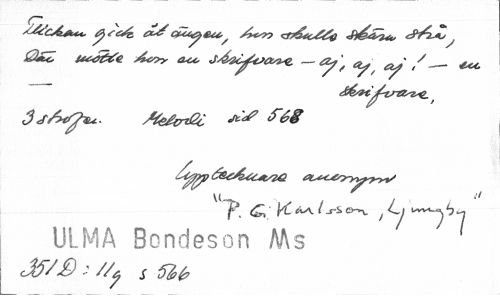 Flickan gick åt ängen, hon skulle skära strå,
Där mötte hon en skrifvare – aj, aj, aj! – en
— skrifvare.
3 strofer. Melodi sid 568
Upptecknare anonym
"P. G. Karlsson, Ljungby"
ULMA Bondeson Ms
351 D : 11g s 566